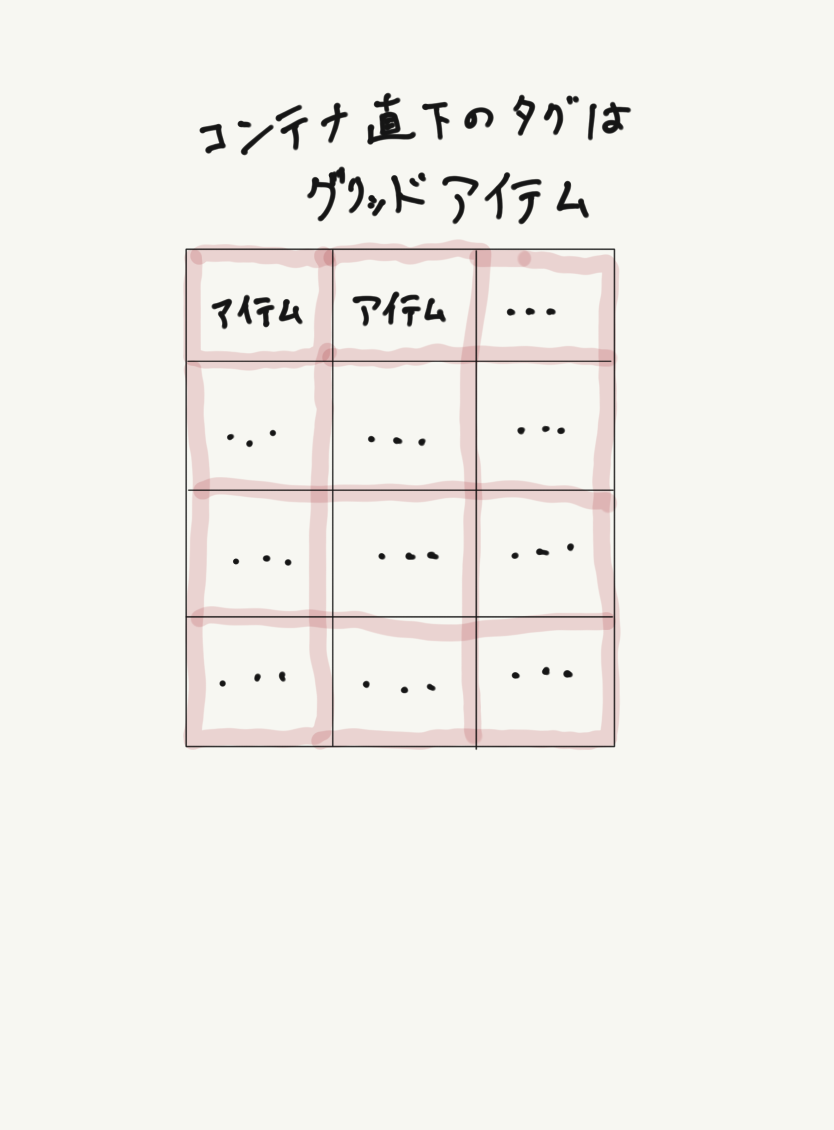 コンテナ直下のタグは
グリッドアイテム
アイテム アイテム ...
... ... ...
... ... ...
... ... ...